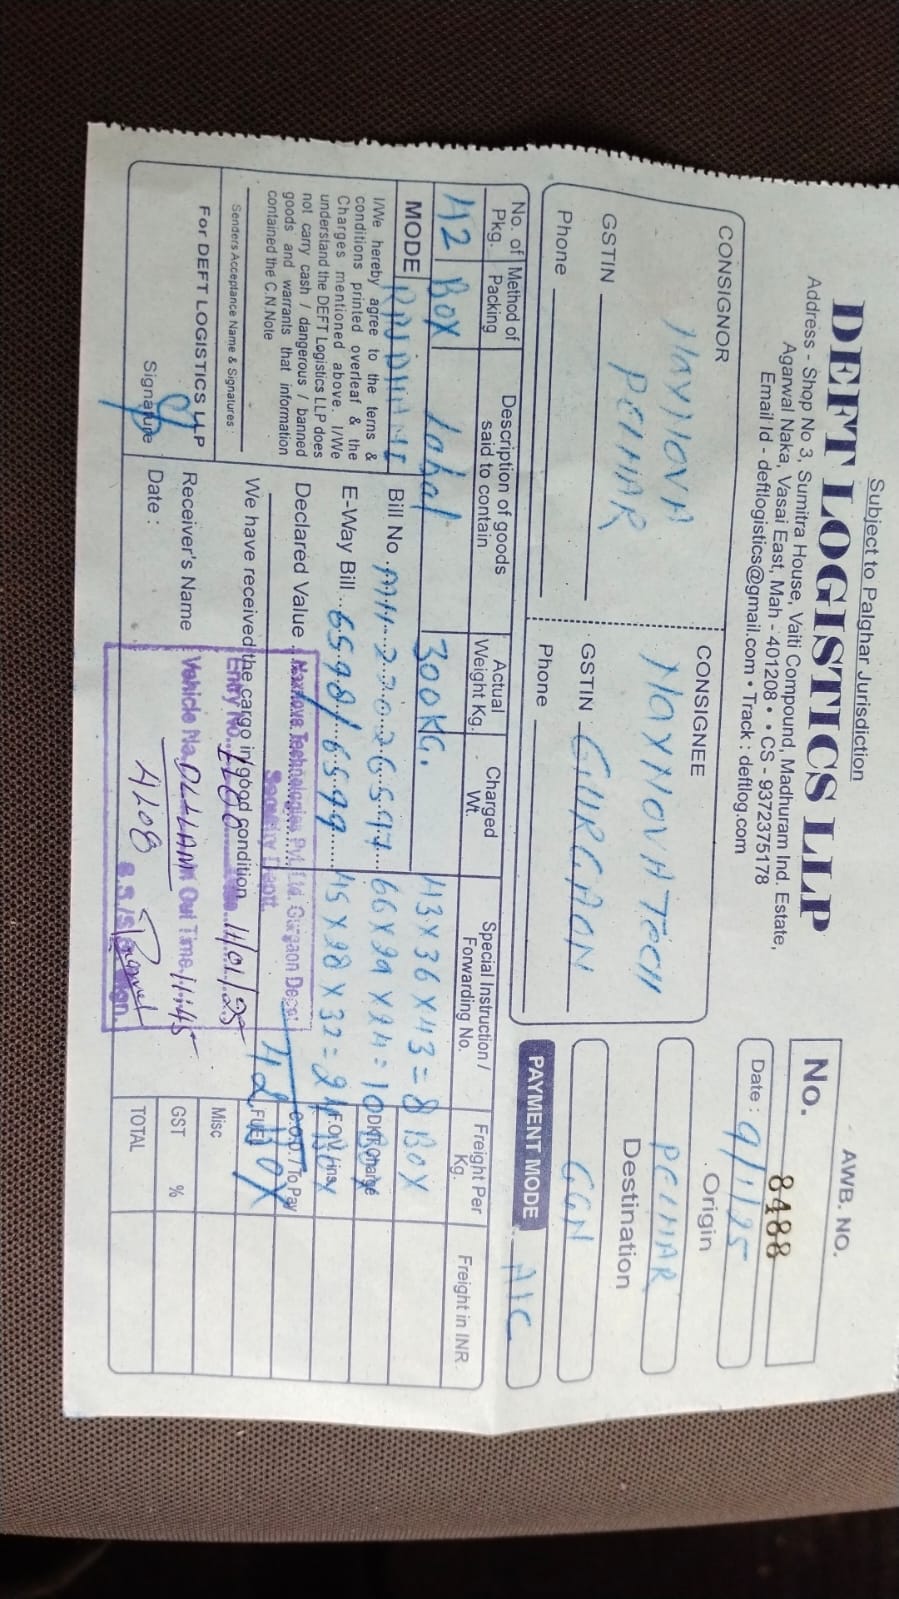 Subject to Palghar Jurisdiction
DEFT LOGISTICS LLP
Address - Shop No 3, Sumitra House, Vaiti Compound, Madhuram Ind. Estate,
Agarwal Naka, Vasai East, Mah - 401208 • • CS - 9372375178
Email Id - deftlogistics@gmail.com • Track : deftlog.com
AWB. NO.
No. 8488
Date : 9/1/25
CONSIGNOR
PELHAR
GSTIN
Phone
CONSIGNEE
GSTIN GURGAON
Phone
Origin
PELHAR
Destination
GGN
PAYMENT MODE A/C
No. of Pkg.
Method of Packing
Description of goods said to contain
Actual Weight Kg.
Charged Wt.
Special Instruction / Forwarding No.
Freight Per Kg.
Freight in INR
42 BOX 300 KG.
43 X 36 X 43 = 8 BOX
MODE
Bill No. MH27026597
E-Way Bill 6598/6599
45 X 28 X 32 = 24 BOX
Declared Value
42 BOX
I/We hereby agree to the terms &
conditions printed overleaf & the
Charges mentioned above. I/We
understand the DEFT Logistics LLP does
not carry cash / dangerous / banned
goods and warrants that information
contained the C.N.Note
Senders Acceptance Name & Signatures :
For DEFT LOGISTICS LLP
Signature
We have received the cargo in good condition
Receiver's Name
Date :
Technologies Pvt. Ltd. Gurgaon Depot
Security Deptt.
Entry No. 11/01/25
Vehicle No. Out Time 11:45
4208
DKT Charge
F.O.V / Ins.
To Pay
FUEL
Misc
GST %
TOTAL